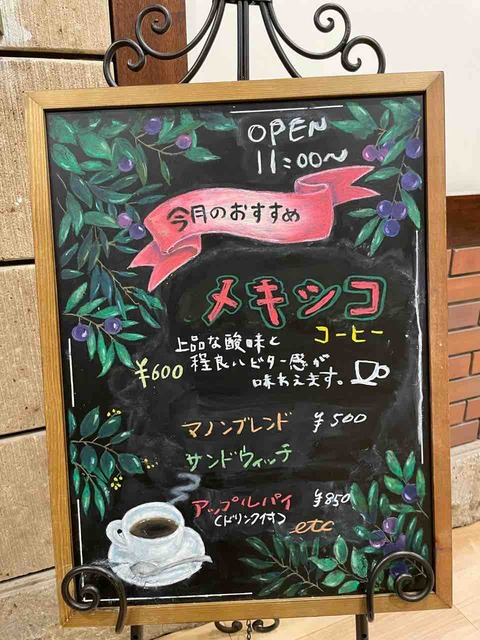 OPEN
11:00～
今月のおすすめ
メキシコ
コーヒー
上品な酸味と
¥600 程良いビター感が
味わえます。
マノンブレンド ¥500
サンドウィッチ
アップルパイ ¥850
(ドリンク付)
etc